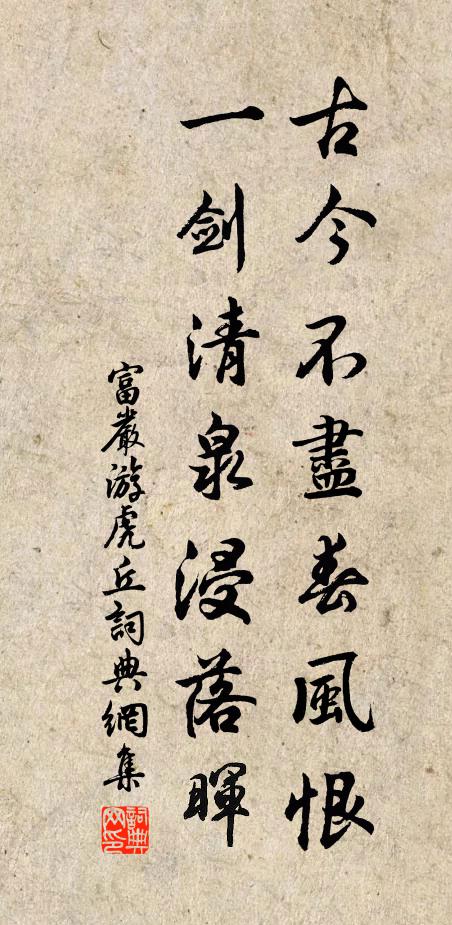 古今不盡春風恨
一劍清泉浸落暉
富嚴游虎丘詞典網集
詞典网印